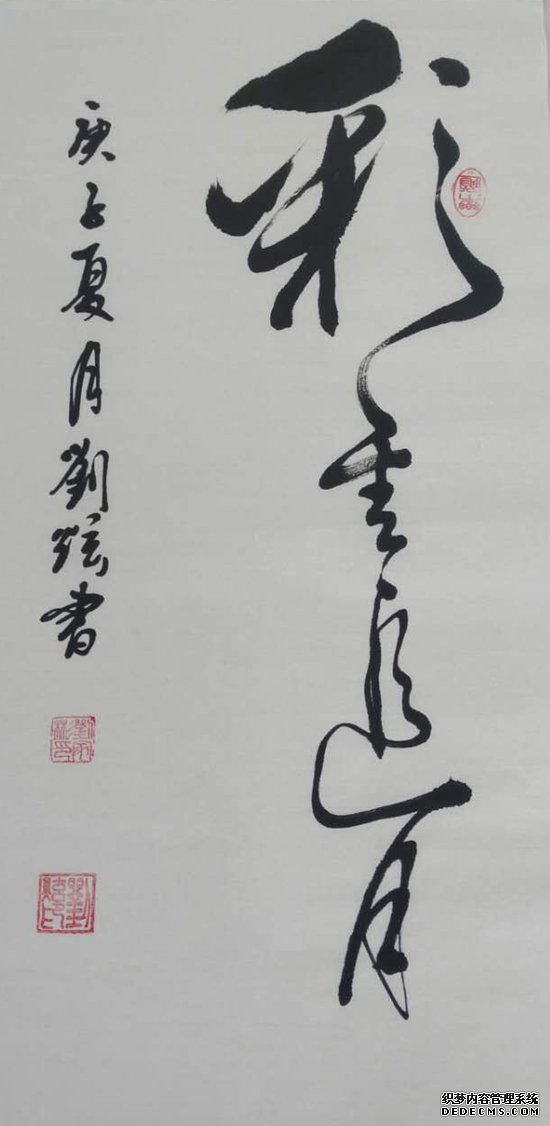 彩云追月
庚子夏月劉炫書
织梦内容管理系统
DEDECMS.COM